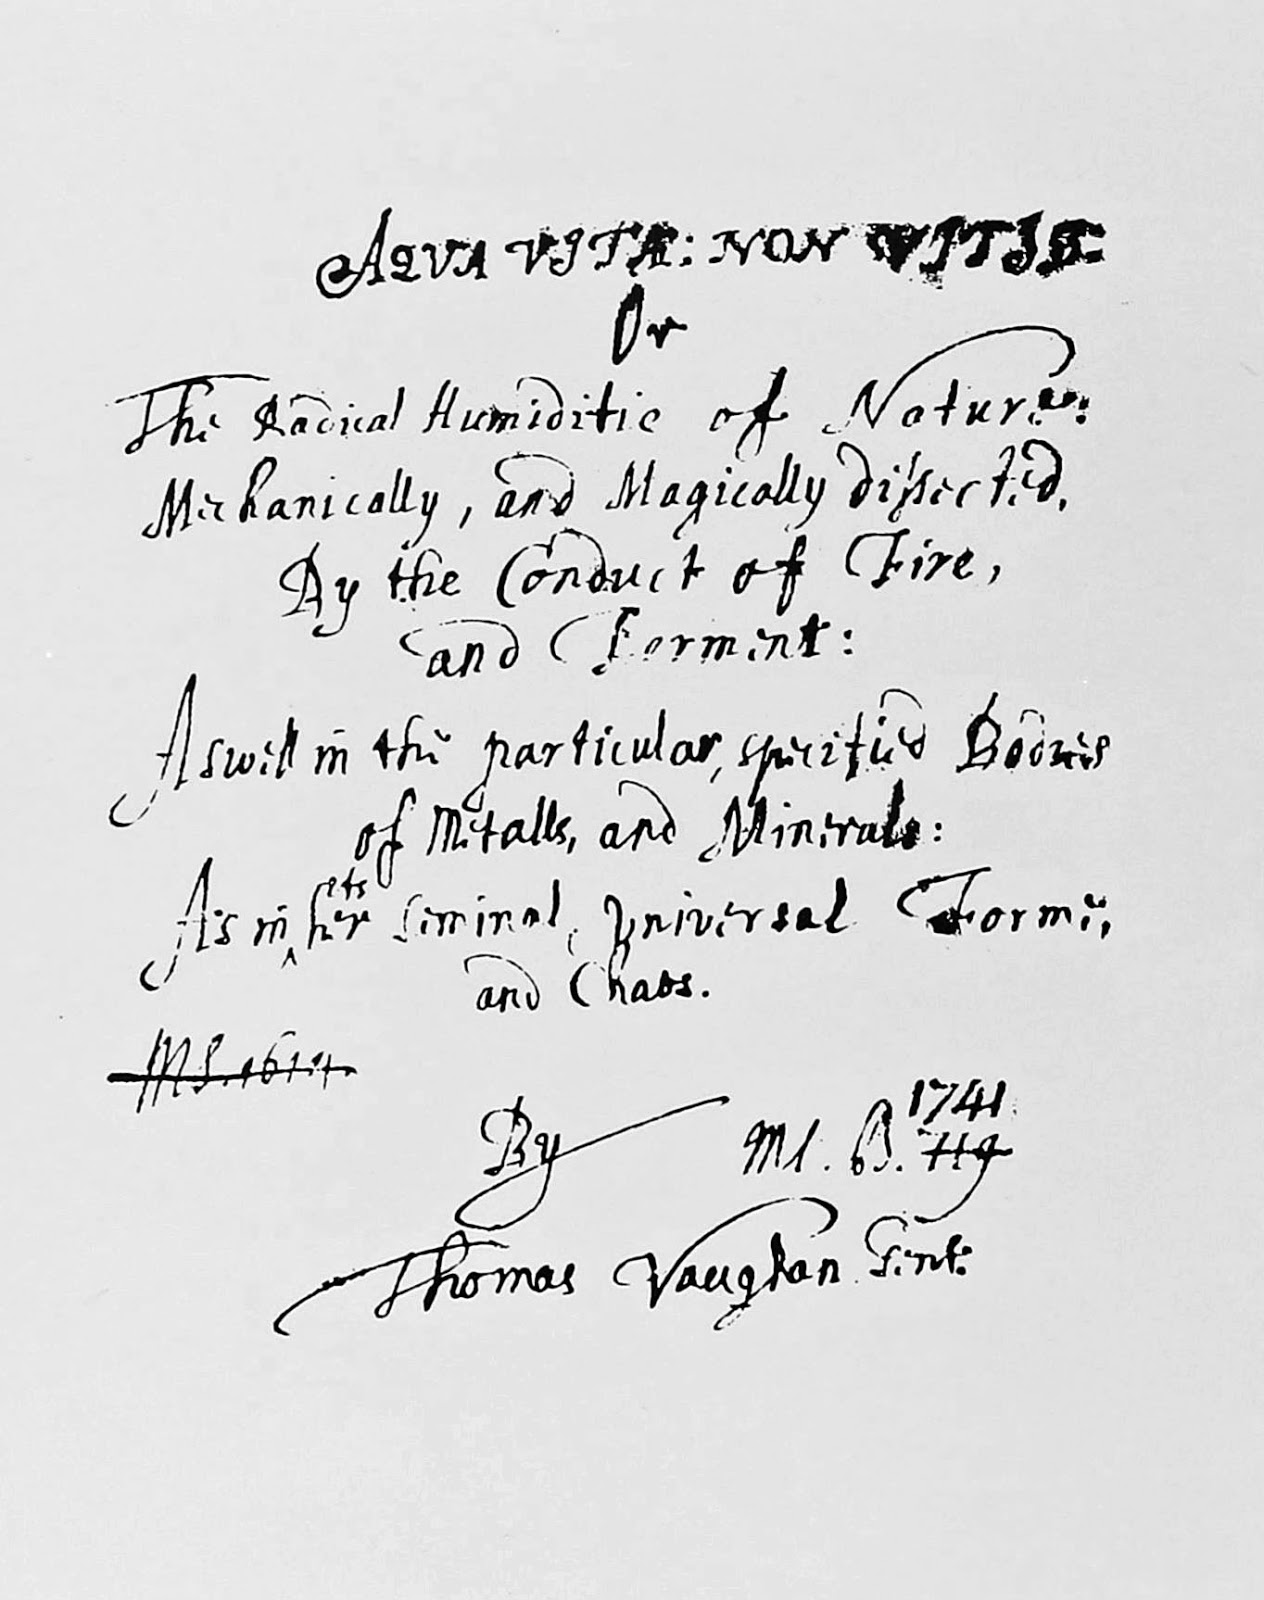 AQVA VITÆ: NON VITIS:
Or
The Radical Humiditie of Nature:
Mechanically, and Magically dissected,
By the Conduct of Fire,
and Ferment:
Aswell in the particular, specified Bodies
of Metalls, and Minerals:
As in its her seminal, Universal Forme,
and Chaos.
MS.
1741
By MS. B.
Thomas Vaughan Gent: